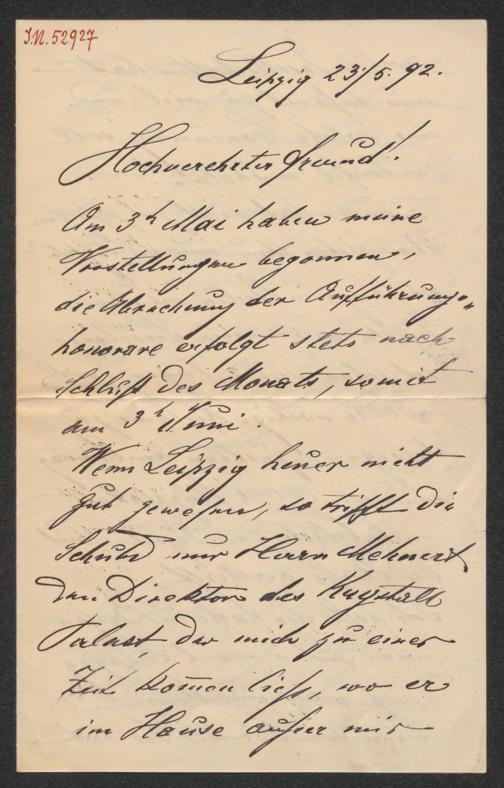 J.N. 52927
Leipzig 23/5. 92.
Hochverehrter Freund!
Am 3t Mai haben meine
Vorstellungen begonnen,
die Abrechnung der Aufführungs„
honorare erfolgt stets nach
Schluß des Monats, somit
am 3t Juni.
Wenn Leipzig heuer nicht
gut gewesen, so trifft die
Schuld nur Herrn Mehnert
den Direktor des Krystall
Palast, der mich zu einer
Zeit kom̅en ließ, wo er
im Hause außer mir